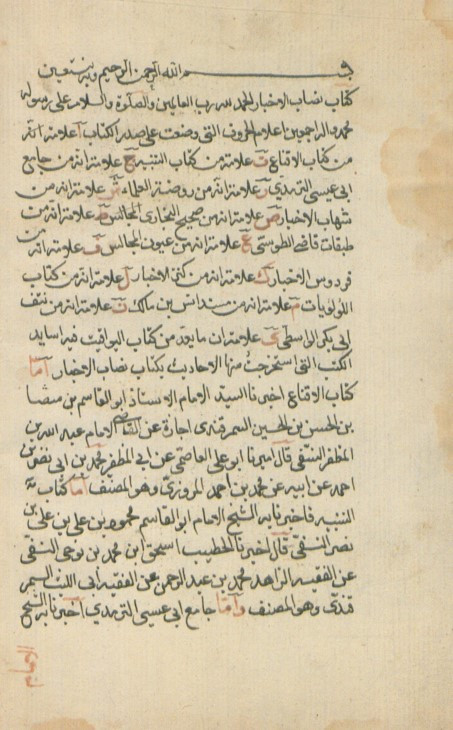 بسم الله الرحمن الرحيم وبه نستعين
كتاب نصاب الاخبار الحمد لله رب العالمين والصلوة والسلام على رسوله
محمد واله اجمعين اعلام الحروف التى وضعت على صدر الكتاب آ علامة انه
من كتاب الاقناع ت علامة من كتاب التنبيه ج علامة انه من جامع
ابى عيسى الترمذى ر علامة انه من روضة العلماء ش علامة انه من
شهاب الاخبار ص علامة انه من صحيح البخارى المجالس ط علامة انه من
طبقات قاضى الطوسى ع علامة انه من عيون المجالس ف علامة انه من
فردوس الاخبار ك علامة انه من كنز الاخبار ل علامة انه من كتاب
اللؤلويات م علامة انه من مسند انس بن مالك ن علامة انه من نتف
ابى بكر الراسطى ى علامة ان ما يعد من كتاب اليواقيت فيه اسانيد
الكتب التى استخرجت منها الاحاديث بكتاب نصاب الاخبار اما
كتاب الاقناع اخبرنا السيد الامام الاستاذ ابو القاسم بن
بن الحسن بن الحسين السمرقندى اجازة عن القاضى الامام عبد الله بن
المظفر النسفى قال اخبرنا ابو على العاصمى عن ابى المظفر محمد بن ابى نصر بن
احمد عن ابيه عن محمد بن احمد المروزى وهو المصنف اما كتاب
التنبيه فاخبرنا به الشيخ الامام ابو القاسم محمود بن على بن على بن
نصر النسفى قال اخبرنا الخطيب اسحق ابن محمد بن نوحى النسفى
عن الفقيه الزاهد محمد بن عبد الرحمن عن الفقيه ابى الليث السمر
قندى وهو المصنف واما جامع ابى عيسى الترمذى اخبرنا به الشيخ